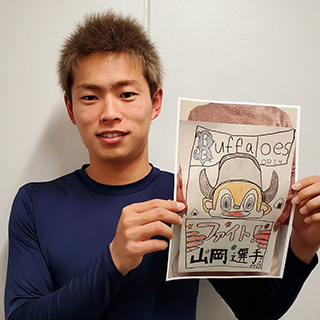 Buffaloes
ORIX
ファイト!!
山岡選手